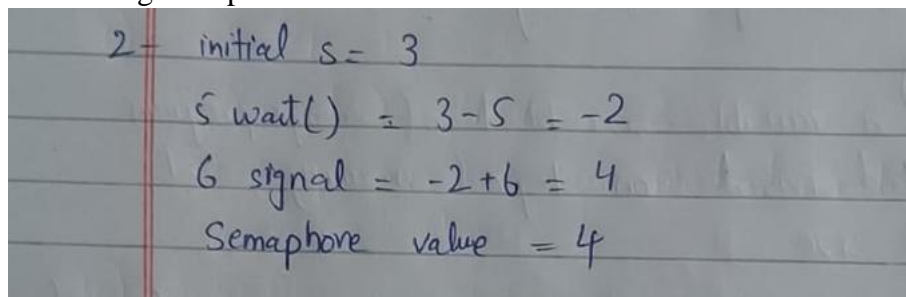 2- initial s= 3
5 wait() = 3-5 = -2
6 signal = -2+6 = 4
Semaphore value = 4